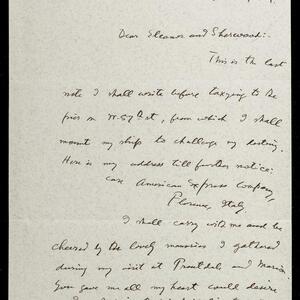 Dear Eleanor and Sherwood:-
This is the last
note I shall write before taxying to the
pier in W. 57th st, from which I shall
mount my ship to challenge my destiny.
Here is my address till further notice:
care American Express Company,
Florence, Italy.
I shall carry with me and be
cheered by the lovely memories I gathered
during my visit at Troutdale and Marion
You gave me all my heart could desire